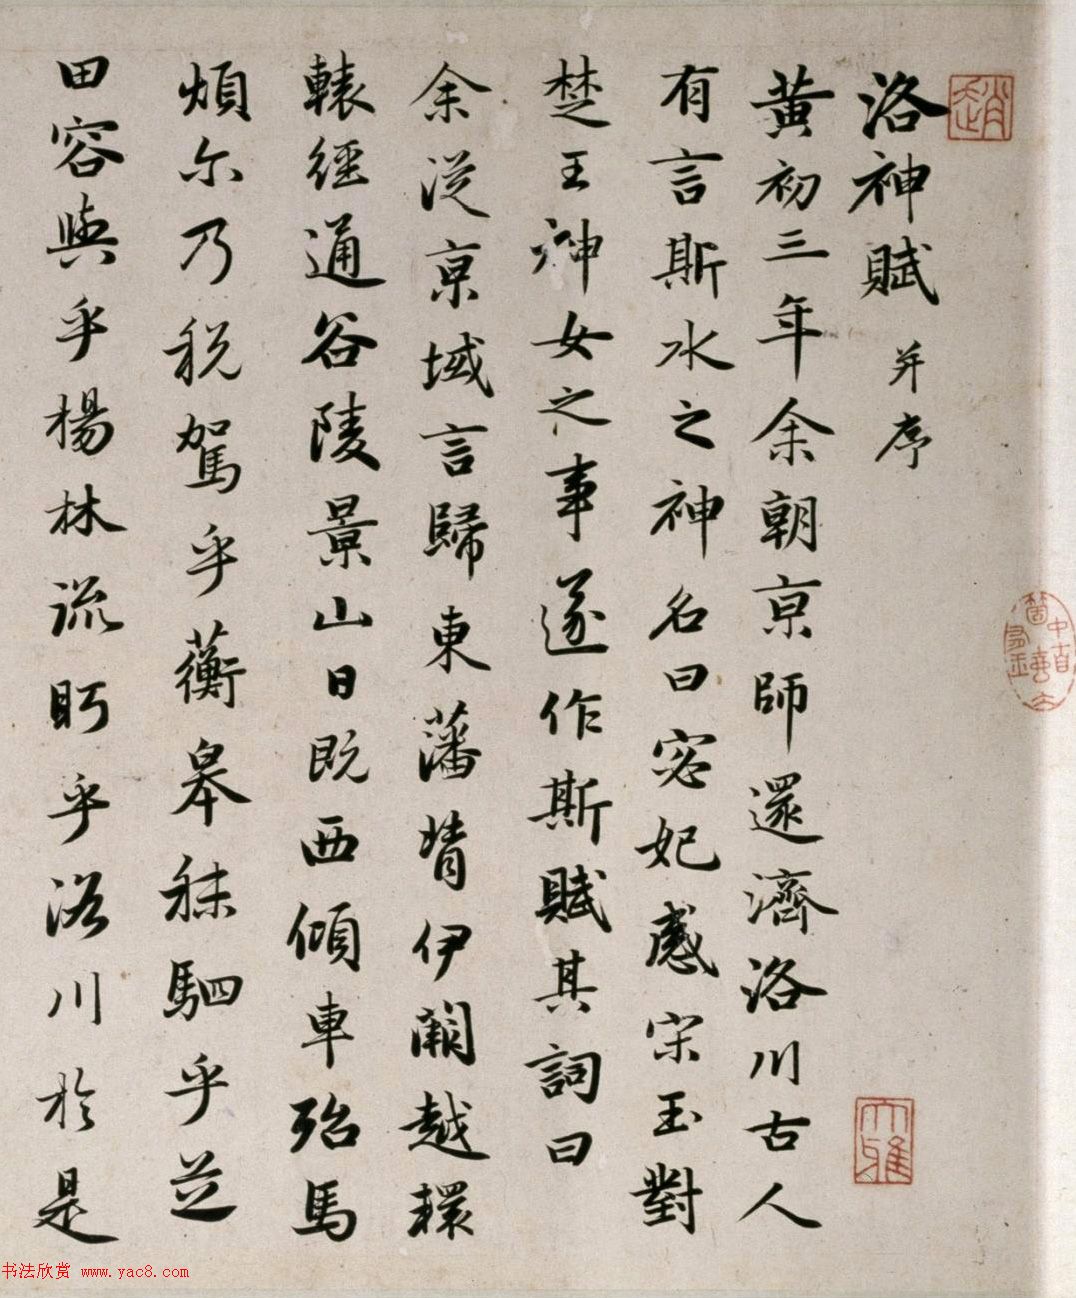 洛神賦 并序
黃初三年余朝京師還濟洛川古人
有言斯水之神名曰宓妃感宋玉對
楚王神女之事遂作斯賦其詞曰
余從京域言歸東藩背伊闕越轘
轅經通谷陵景山日既西傾車殆馬
煩尔乃税駕乎蘅皋秣駟乎芝
田容與乎楊林流眄乎洛川於是
趙
大雅
书法欣赏 www.yac8.com